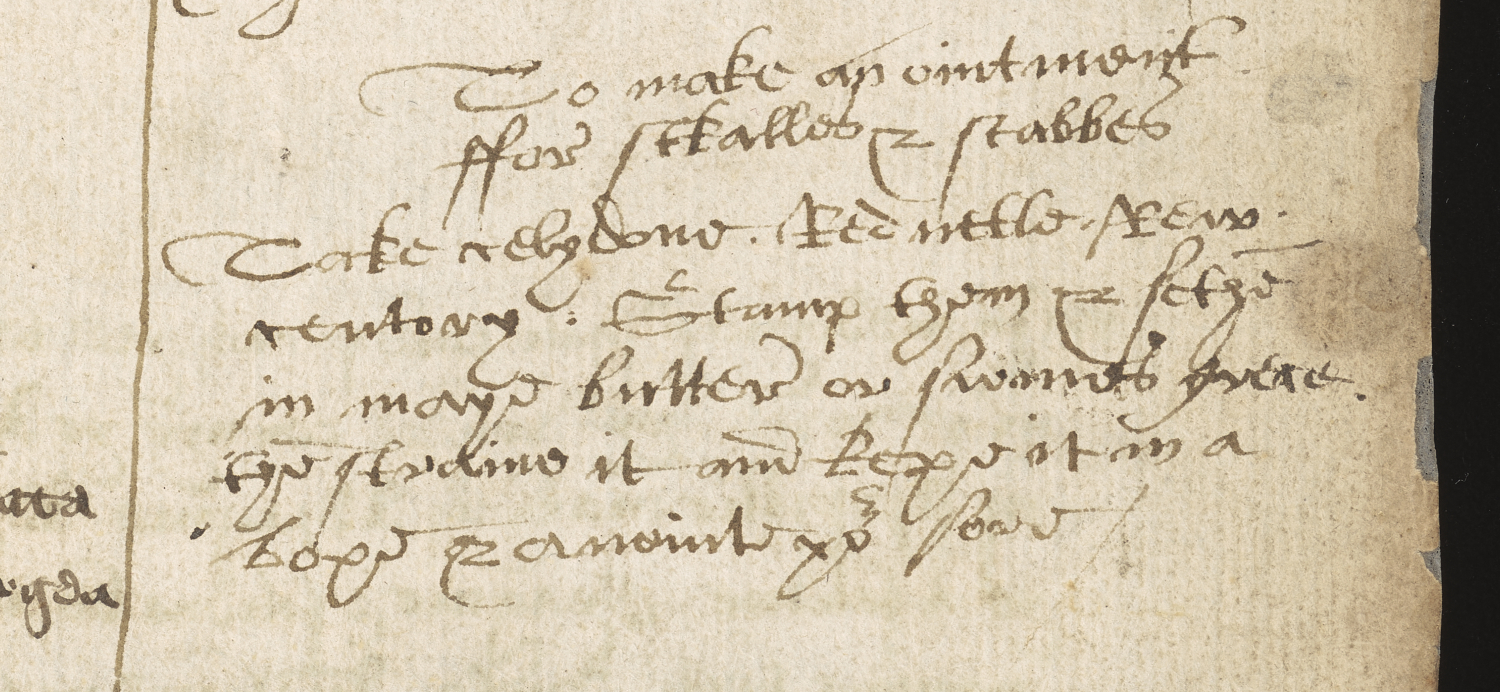 To make an ointment
ffor sckalles & scabbes
Take celydone . Red nettle . Rew .
centory : Stamp them & sethe
in maye butter or swines grece .
the straine it and kepe it in a
boxe & anointe yor sore
ata
ogda